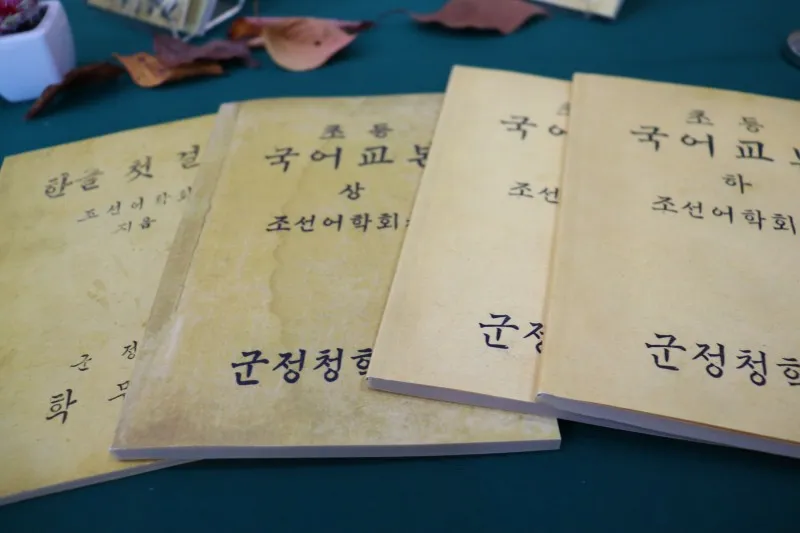 한글 첫 걸
조선어학회
지음
군 정
학 무
초등
국어교본
상
조선어학회
군정청학
초
국어
조선
군정
초등
국어교
하
조선어학회
군정청학